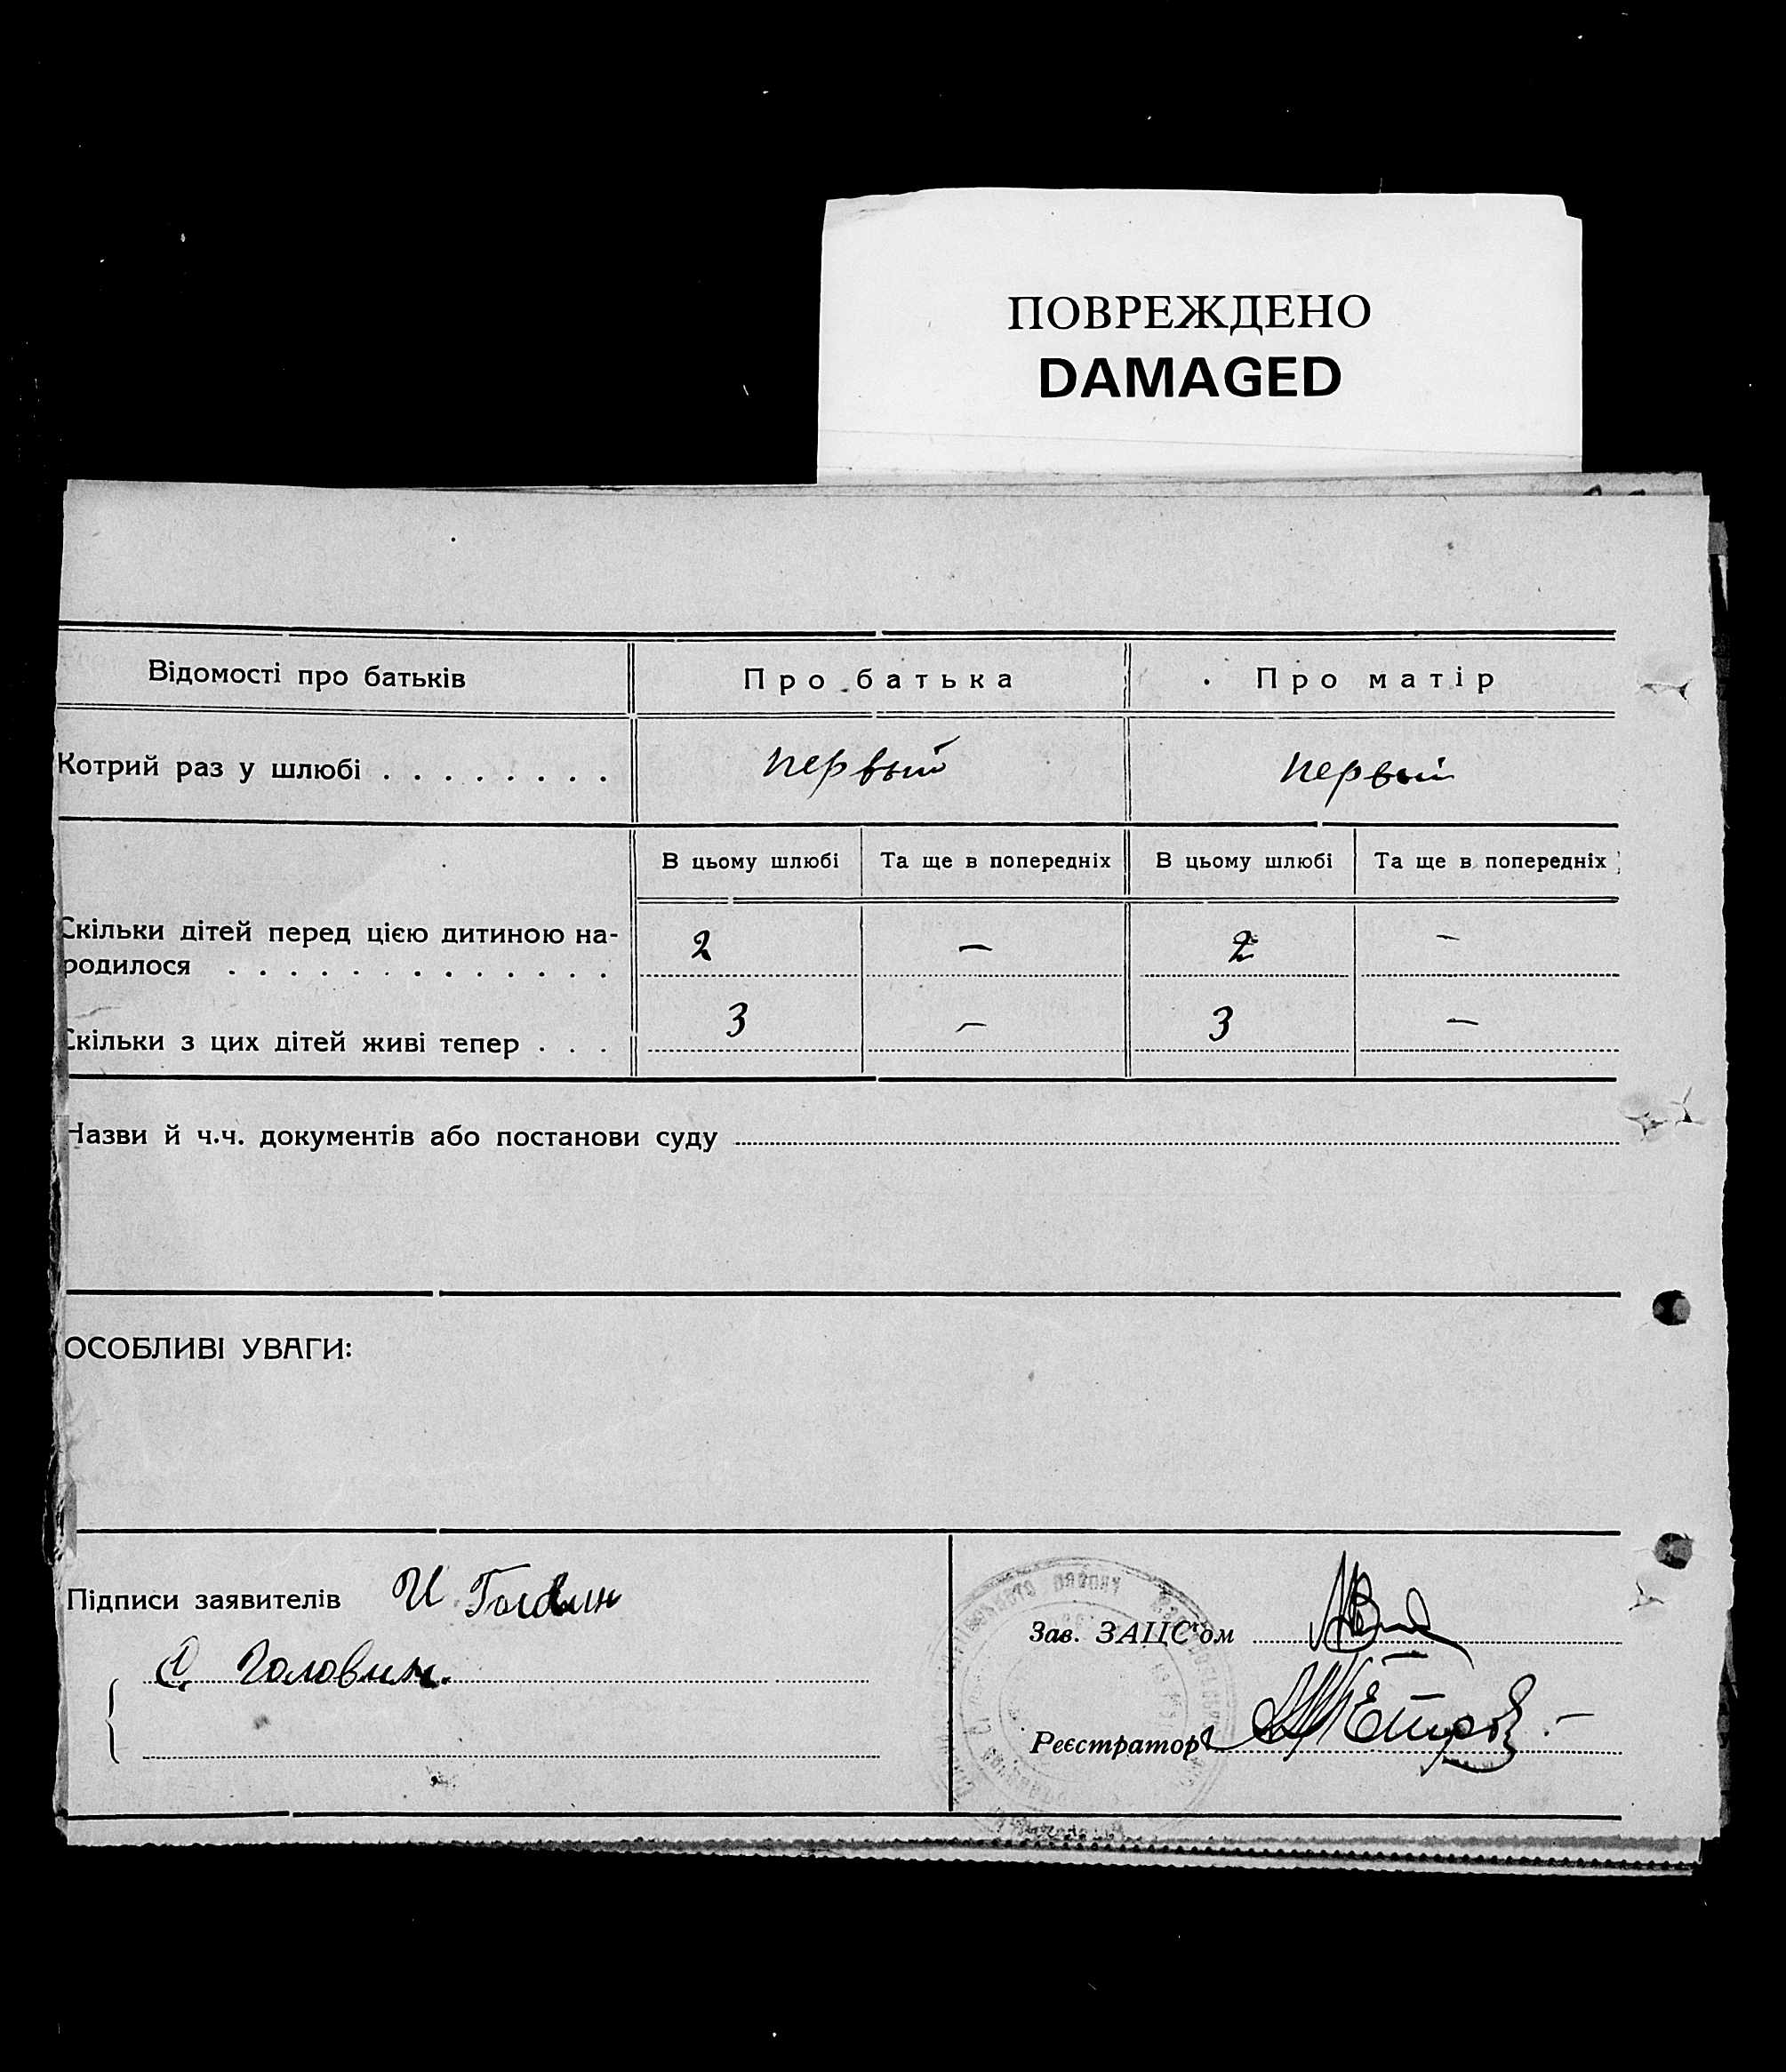 ПОВРЕЖДЕНО
DAMAGED
Відомості про батьків Про батька Про матір
Котрий раз у шлюбі . . . . . . . . первый первый
В цьому шлюбі Та ще в попередніх В цьому шлюбі Та ще в попередніх
Скільки дітей перед цією дитиною на-
родилося . . . . . . . . . . . . . 2 — 2 —
Скільки з цих дітей живі тепер . . . 3 — 3 —
Назви й ч.ч. документів або постанови суду
ОСОБЛИВІ УВАГИ:
Підписи заявителів И
С. Головин.
Зав. ЗАЦС'ом
Реєстратор Петров